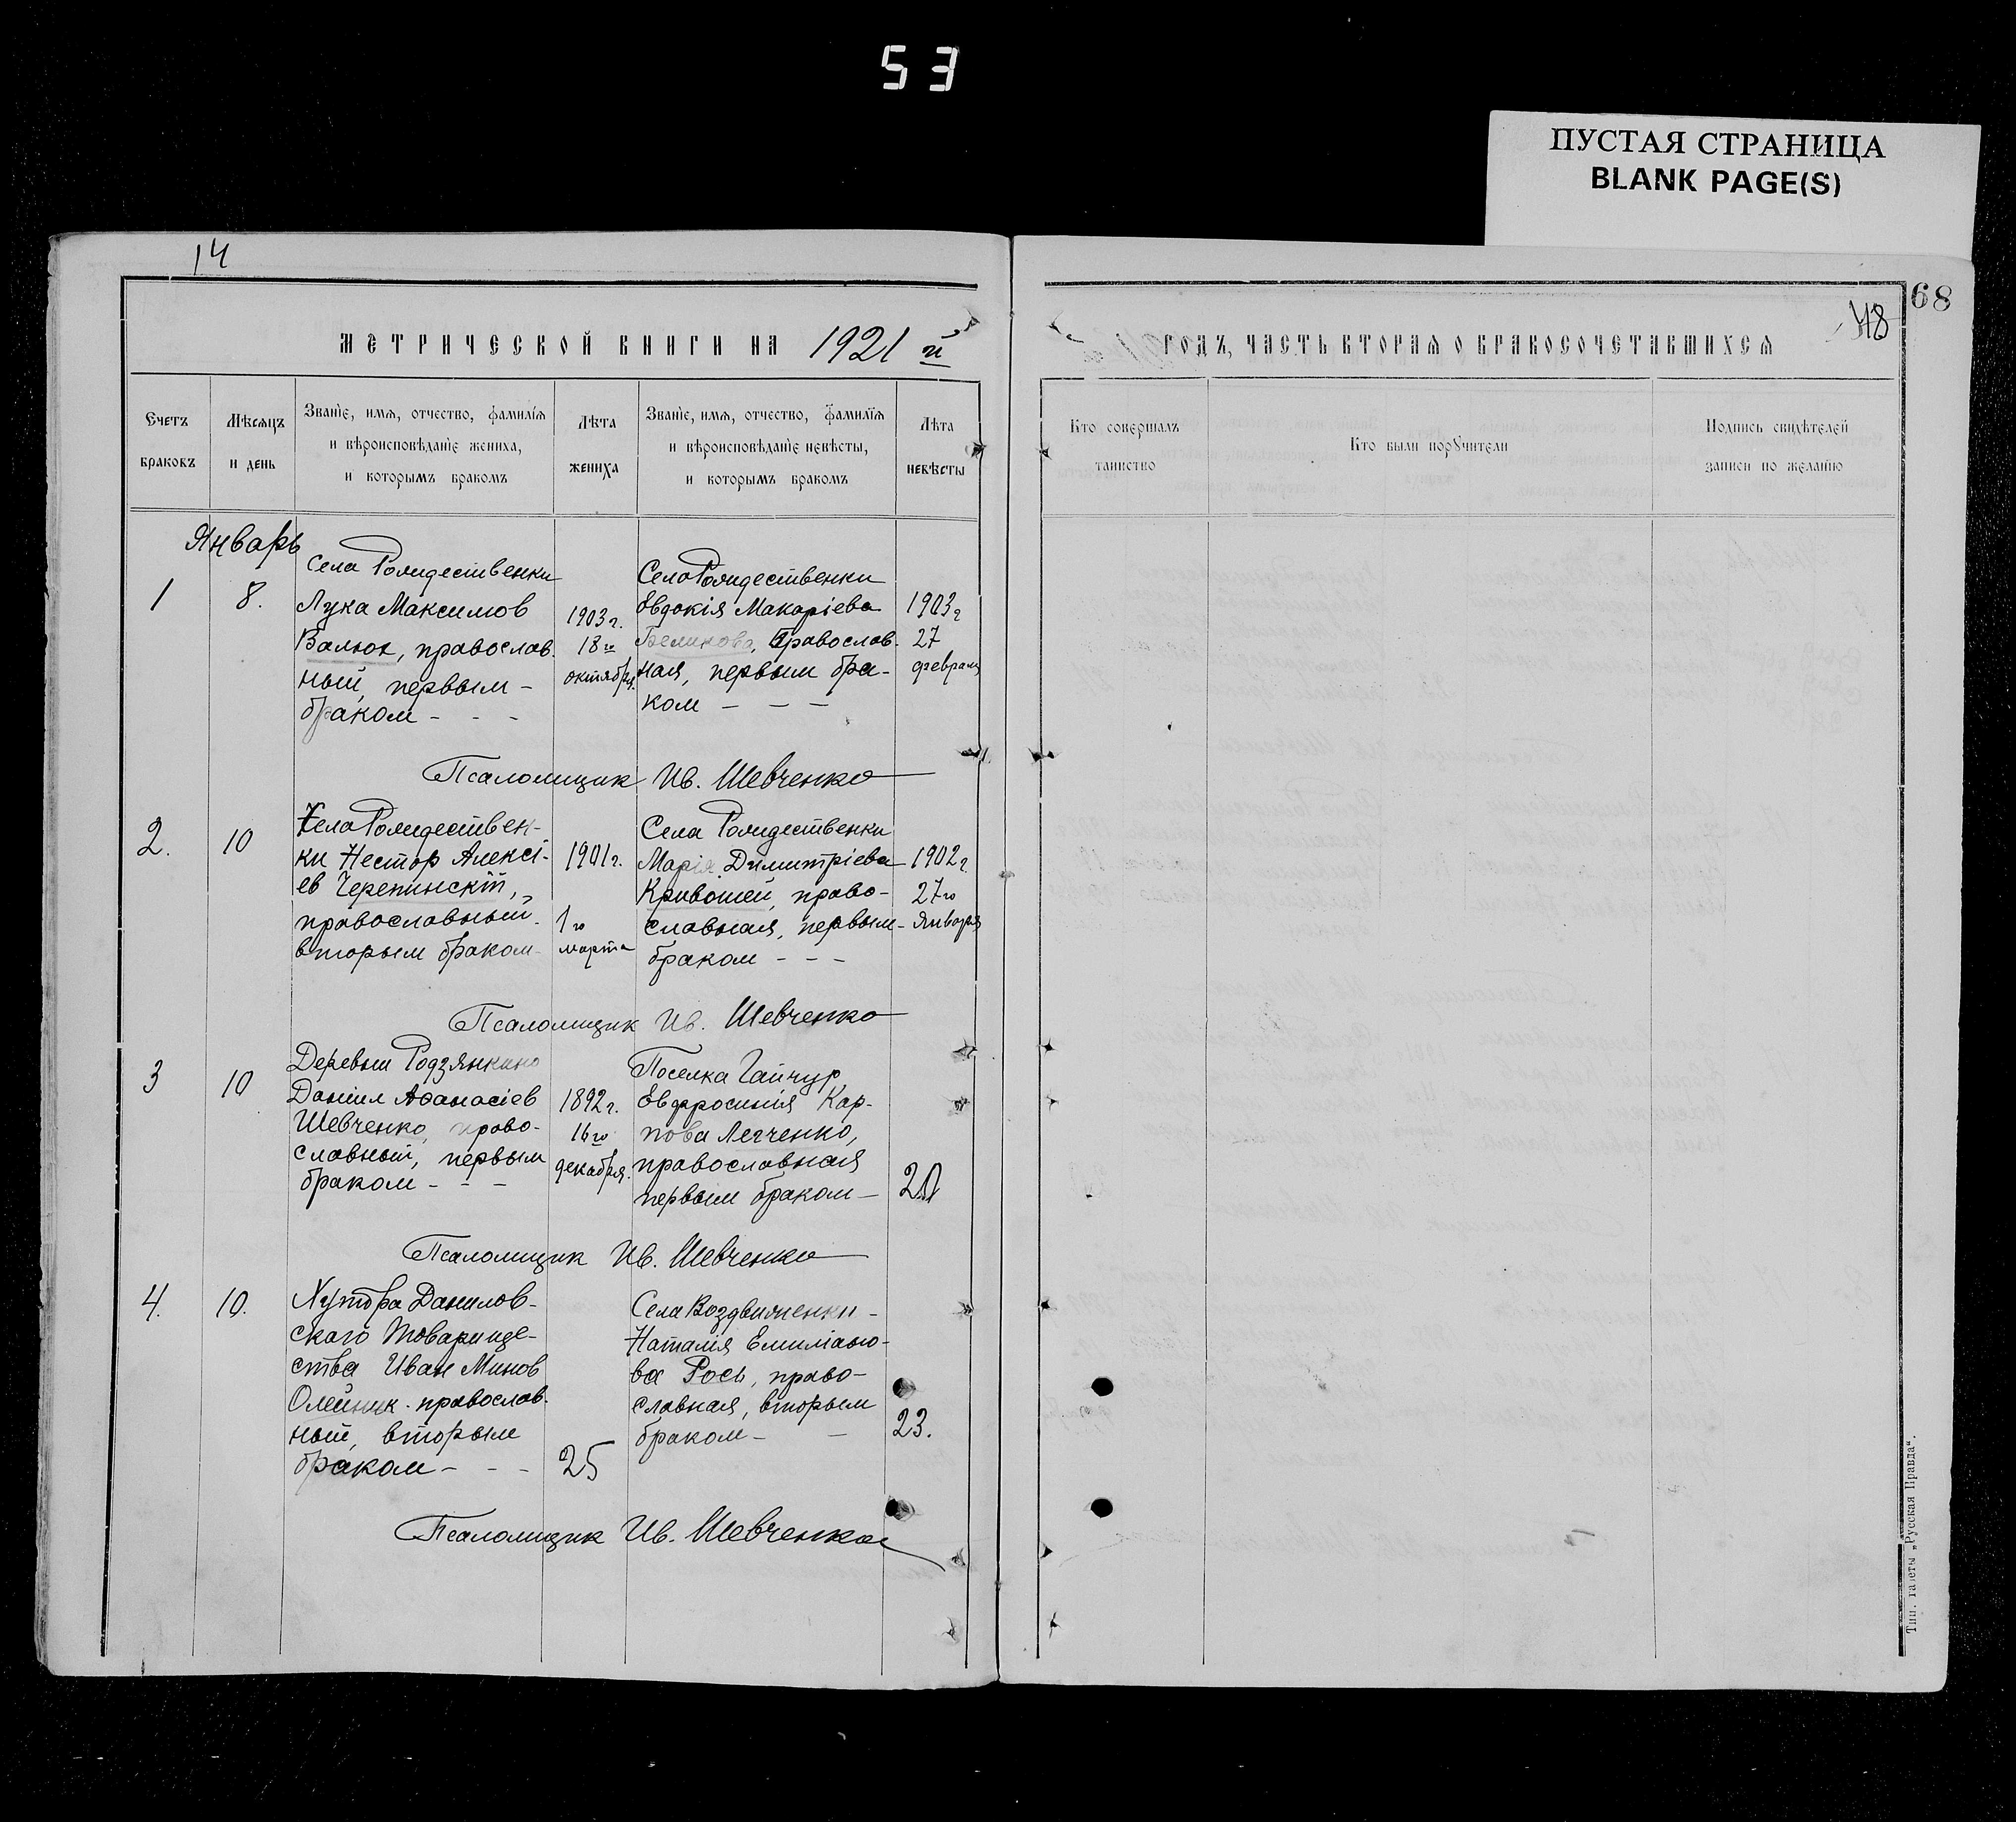 53
ПУСТАЯ СТРАНИЦА
BLANK PAGE(S)
14
68
48
МЕТРИЧЕСКОЙ КНИГИ НА 1921 й
ГОДЪ, ЧАСТЬ ВТОРАЯ О БРАКОСОЧЕТАВШИХСЯ
Счетъ браковъ
Мѣсяцъ и день
Званіе, имя, отчество, фамилія
и вѣроисповѣданіе жениха,
и которымъ бракомъ
Лѣта жениха
Званіе, имя, отчество, фамилія
и вѣроисповѣданіе невѣсты,
и которымъ бракомъ
Лѣта невѣсты
Кто совершалъ таинство
Кто были поручители
Подпись свидѣтелей
записи по желанію
Январь
1
8.
Села Рождественки
Лука Максимов
Валюк, православ.
ный, первым -
браком - - -
1903 г.
18 го
октября.
Село Рождественки
Евдокія Макаріева
Беликова, православ.
ная, первым бра-
ком - - -
1903 г
27
февраля
Псаломщик Ив. Шевченко
2.
10
Села Рождествен-
ки Нестор Алексі-
ев Черепинскій,
православный.
вторым браком -
1901 г.
1 го
марта
Села Рождественки
Марія Димитріева
Кривошей, право-
славная, первым -
браком - - -
1902 г.
27 го
января
Псаломщик Ив. Шевченко
3
10
Деревни Родзянкино
Даніил Аѳанасіев
Шевченко, право-
славный, первым
браком - - -
1892 г.
16 го
декабря.
Поселка Гайчур
Евфросинія Кар-
пова Легченко,
православная
первым браком -
20
Псаломщик Ив. Шевченко
4.
10.
Хутора Данилов-
скаго Товарище-
ства Иван Минов
Олейник. православ.
ный, вторым
браком - - -
25
Села Воздвиженки -
Наталія Емиліано-
ва Рось, право-
славная, вторым
браком - -
23.
Псаломщик Ив. Шевченко
Тип. газеты „Русская Правда“.